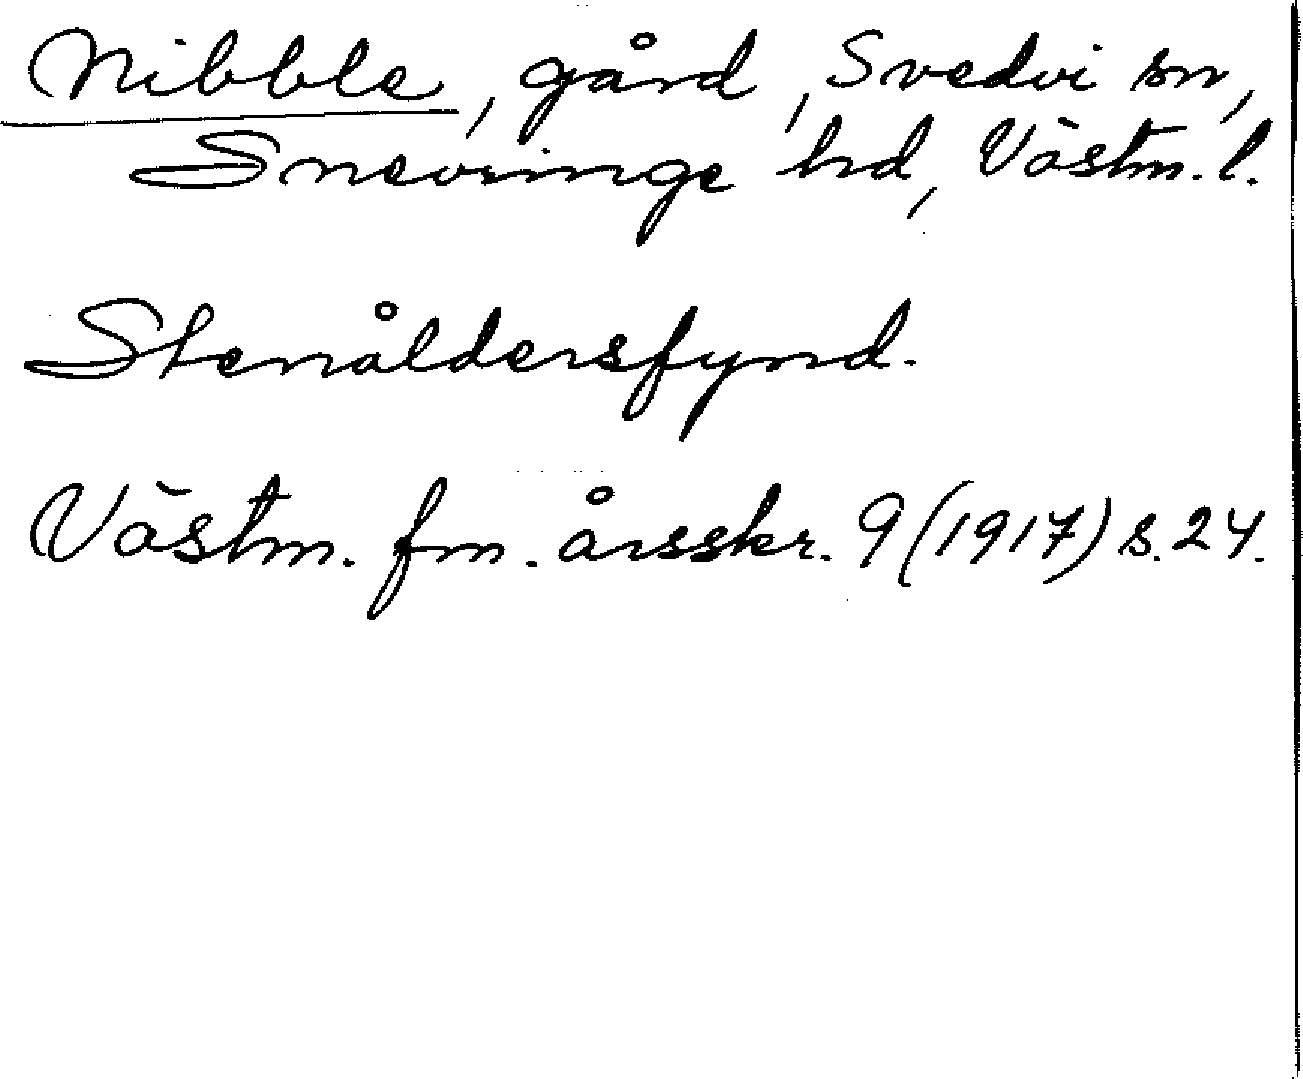 Nibble, gård, Svedvi sn,
Snevringe hd, Västm. l.
Stenåldersfynd.
Västm. fm. årsskr. 9 (1917) s. 24.